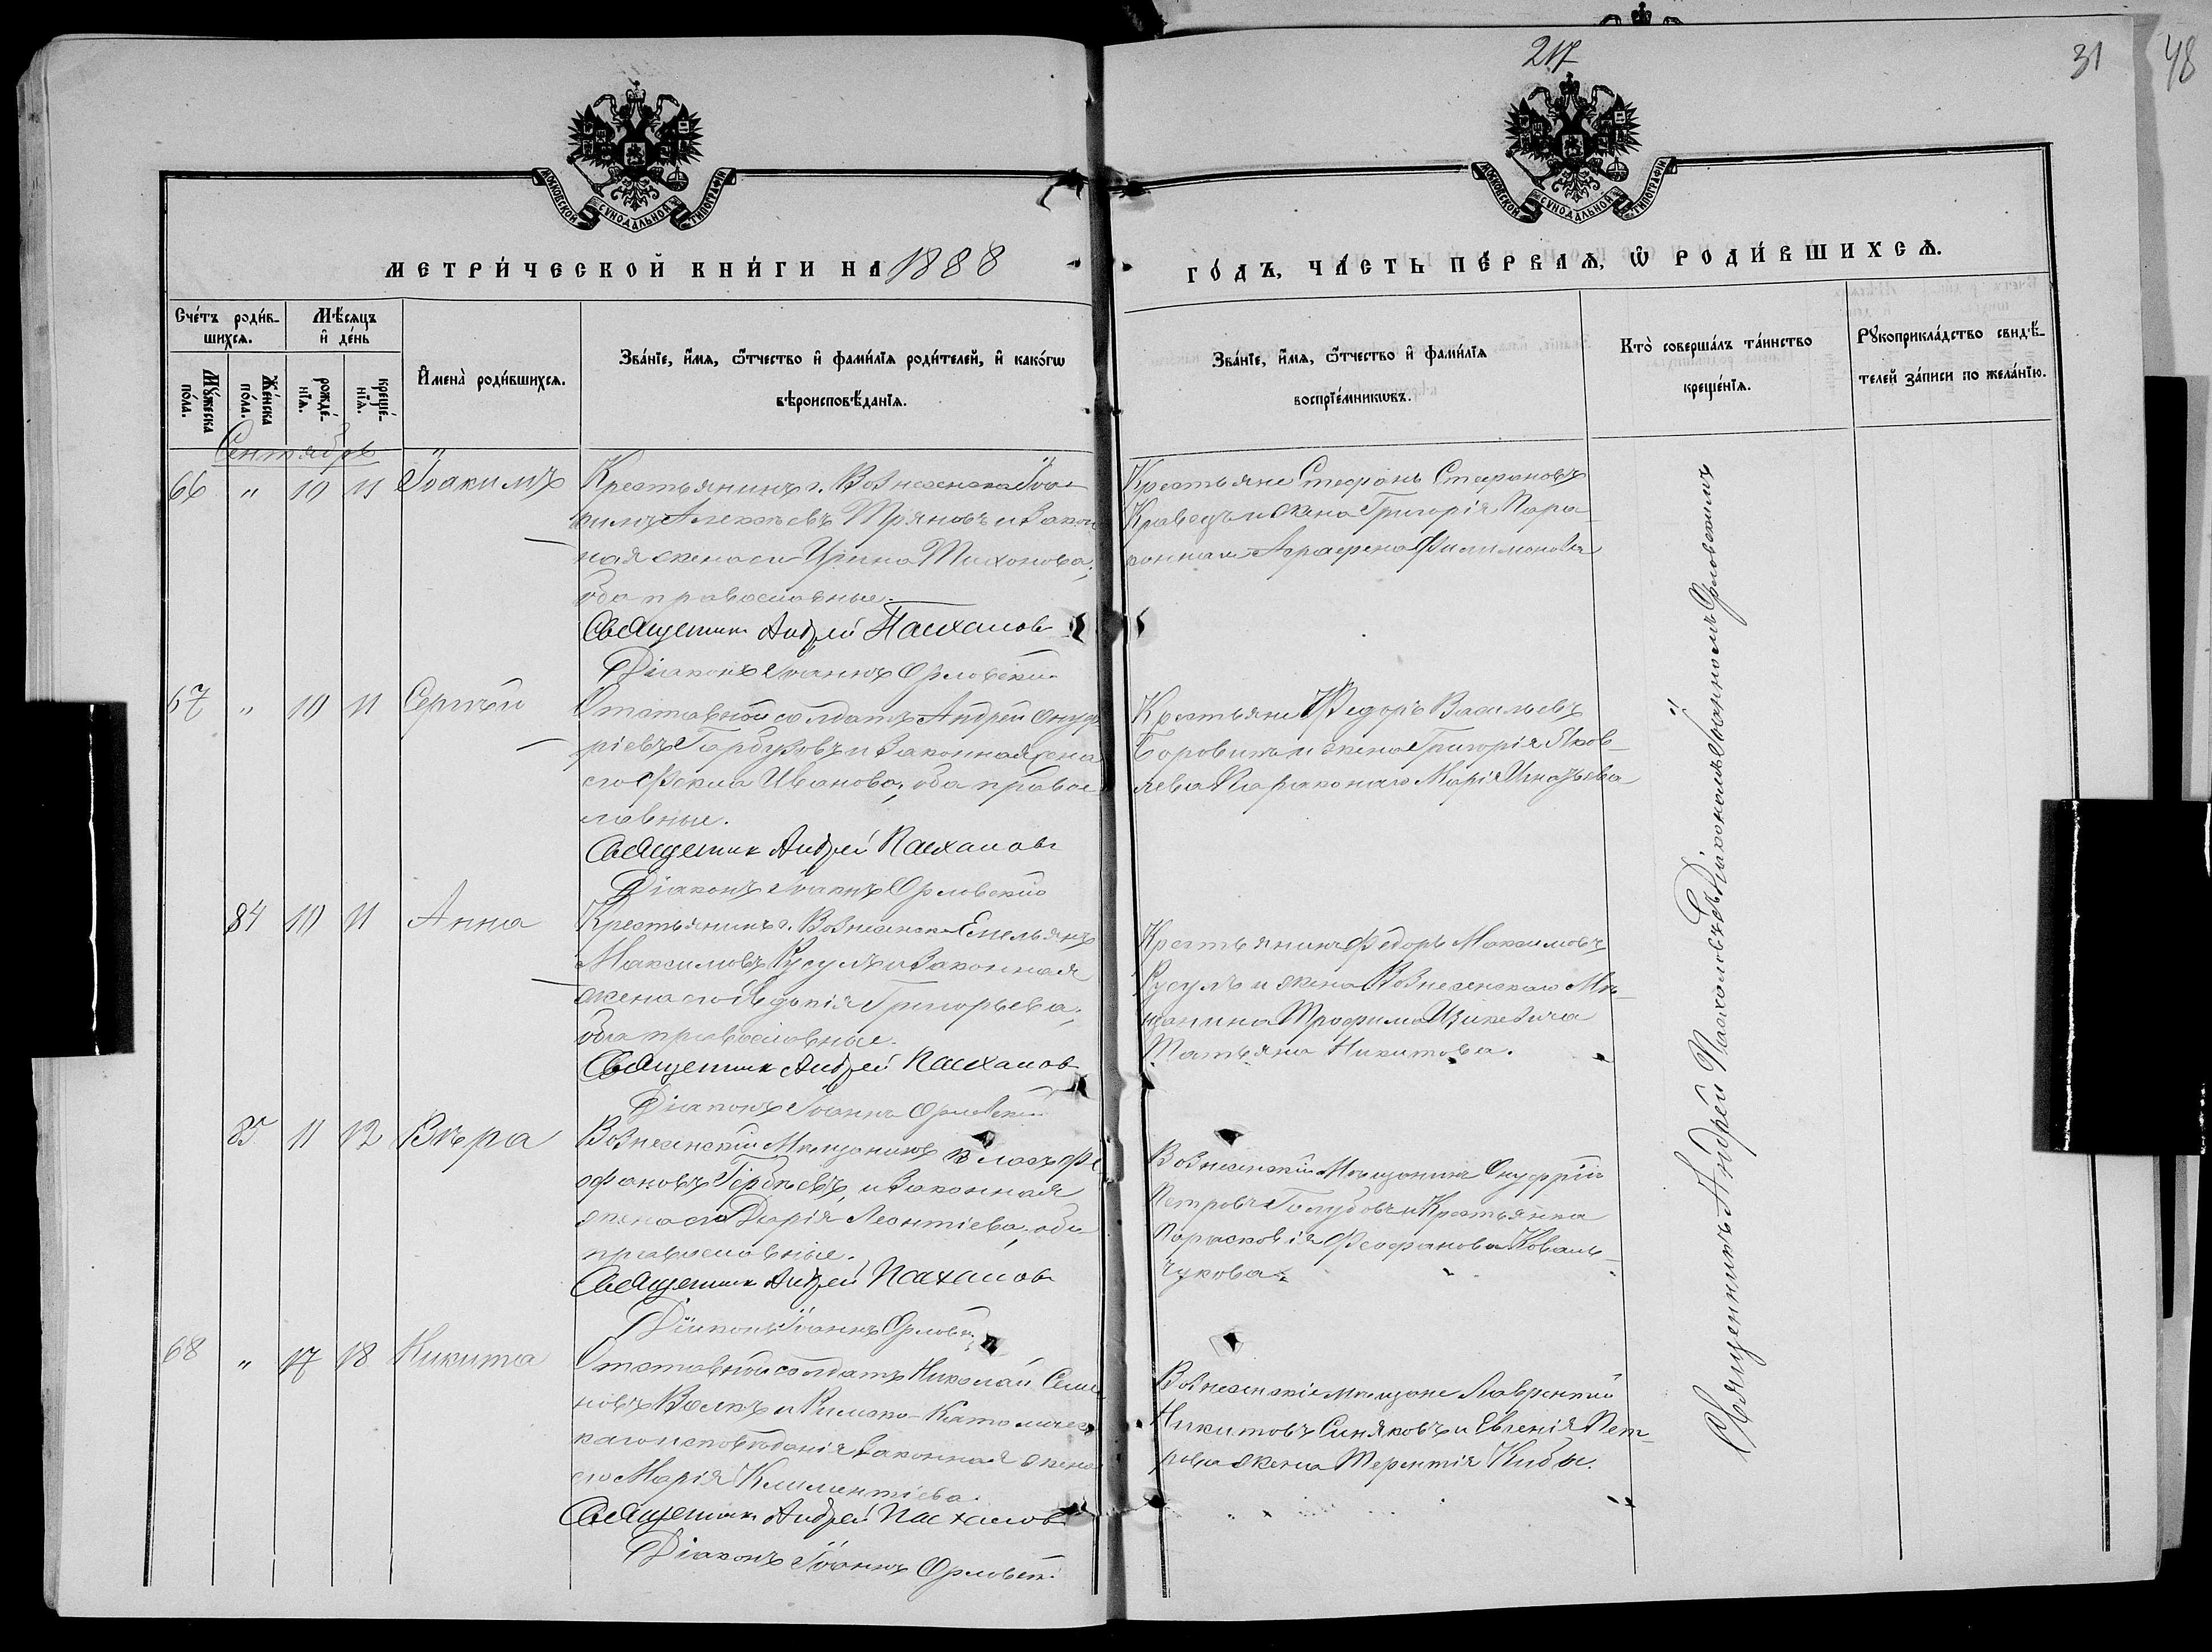 217
31
48
МОСКОВСКОЙ СѴНОДАЛЬНОЙ ТИПОГРАФІИ
МОСКОВСКОЙ СѴНОДАЛЬНОЙ ТИПОГРАФІИ
МЕТРИ́ЧЕСКОЙ КНИ́ГИ НА 1888
ГО́ДЪ, ЧА́СТЬ ПЕ́РВАѦ, Ѡ҆ РОДИ́ВШИХСѦ.
Сче́тъ роди́в-
шихсѧ.
Мꙋ́жеска
по́ла.
Же́нска
по́ла.
Мѣ́сѧцъ
и҆ де́нь
рожде́-
нїѧ.
креще́-
нїѧ.
И҆мена̀ роди́вшихсѧ.
Зва́нїе, и҆́мѧ, ѻ҆́тчество и҆ фами́лїѧ роди́телей, и҆ како́гѡ
вѣроисповѣ́данїѧ.
Зва́нїе, и҆́мѧ, ѻ҆́тчество и҆ фами́лїѧ
воспрїе́мникѡвъ.
Кто̀ соверша́лъ та́инство
креще́нїѧ.
Рꙋкоприкла́дство свидѣ́-
телей за́писи по жела́нїю.
Сентябрь
66 " 10 11 Іоакимъ
Крестьянинъ г. Вознесенска Іоа-
кимъ Алексѣевъ и Закон
ная жена его Ирина Тихонова;
оба православные.
Священникъ Андрей Пасхалов
Діаконъ Іоаннъ Орловскій
Крестьяне Стефанъ Стефановъ
Кравецъ и жена Григорія Пара-
коннаго Аграфена Филимонова
67 " 10 11 Сергѣй
Отставной солдатъ Андрей Онуф
ріевъ Гарбузовъ и Законная жена
его Фекла Иванова; оба правос
лавные.
Священник Андрей Пасхалов
Діаконъ Іоаннъ Орловскій
Крестьяне Федоръ Васильевъ
Боровикъ и жена Григорія Яков-
лева Параконаго Марія Игнатьева
84 10 11 Анна
Крестьянинъ г. Вознесенска Емельянъ
Максимовъ Русулъ и Законная
жена его Евдокія Григорьева;
оба православные.
Священник Андрей Пасхалов
Діаконъ Іоаннъ Орловскій
Крестьянинъ Федоръ Максимовъ
Русулъ и жена Вознесенскаго Мѣ-
щанина Трофима
Татьяна Никитова.
85 11 12 Вѣра
Вознесенскій Мѣщанинъ Власъ Фе
офановъ и Законная
жена его Дарія Леонтіева; оба
православные.
Священник Андрей Пасхалов
Діаконъ Іоаннъ Орловскій
Вознесенскій Мѣщанинъ Онуфрій
Петровъ Голубовъ и Крестьянка
Парасковія Феофанова Коваль-
чукова.
68 " 17 18 Никита
Отставной солдатъ Николай Семе
новъ Волкъ и Римско-Католичес
каго исповѣданія Законная жена
его Марія Климентіева.
Священник Андрей Пасхалов
Діаконъ Іоаннъ Орловскій
Вознесенскіе мѣщане Лаврентій
Никитовъ Синяковъ и Евгенія Пет-
рова жена Терентія Кибы.
Священникъ Андрей Пасхаловъ съ Діакономъ Іоанномъ Орловскимъ